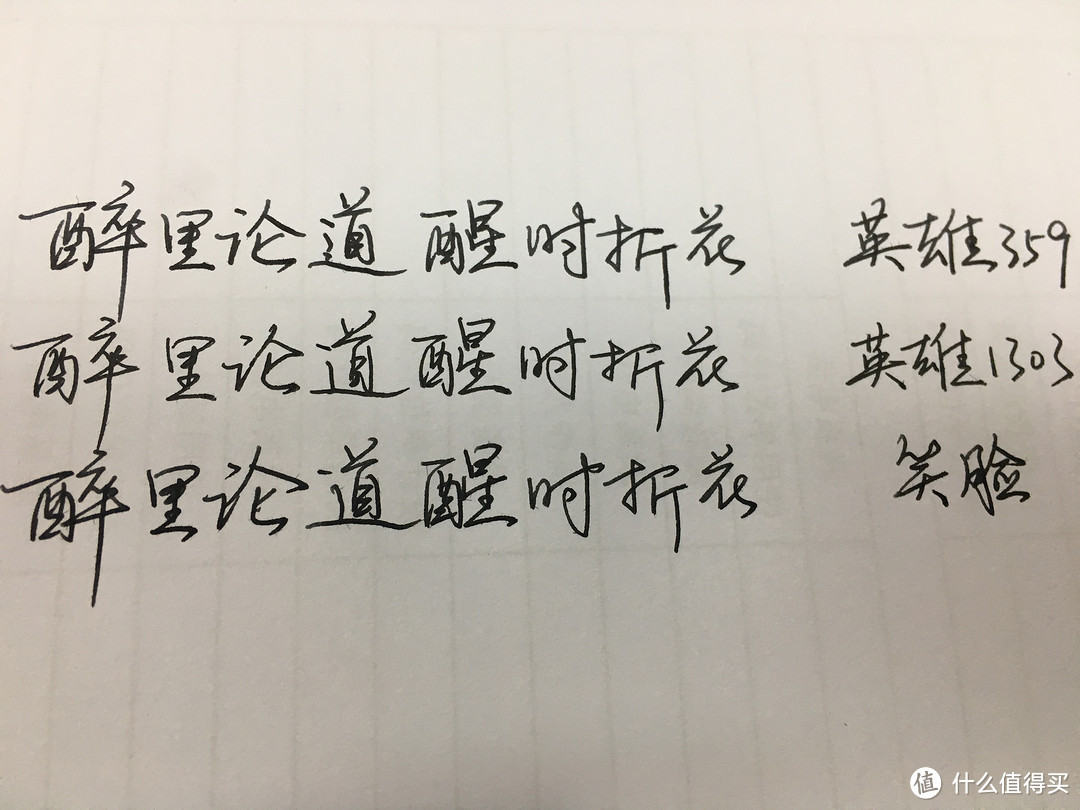 醉里论道 醒时折花 英雄359
醉里论道醒时折花 英雄1303
醉里论道醒时折花 笑脸
值 什么值得买